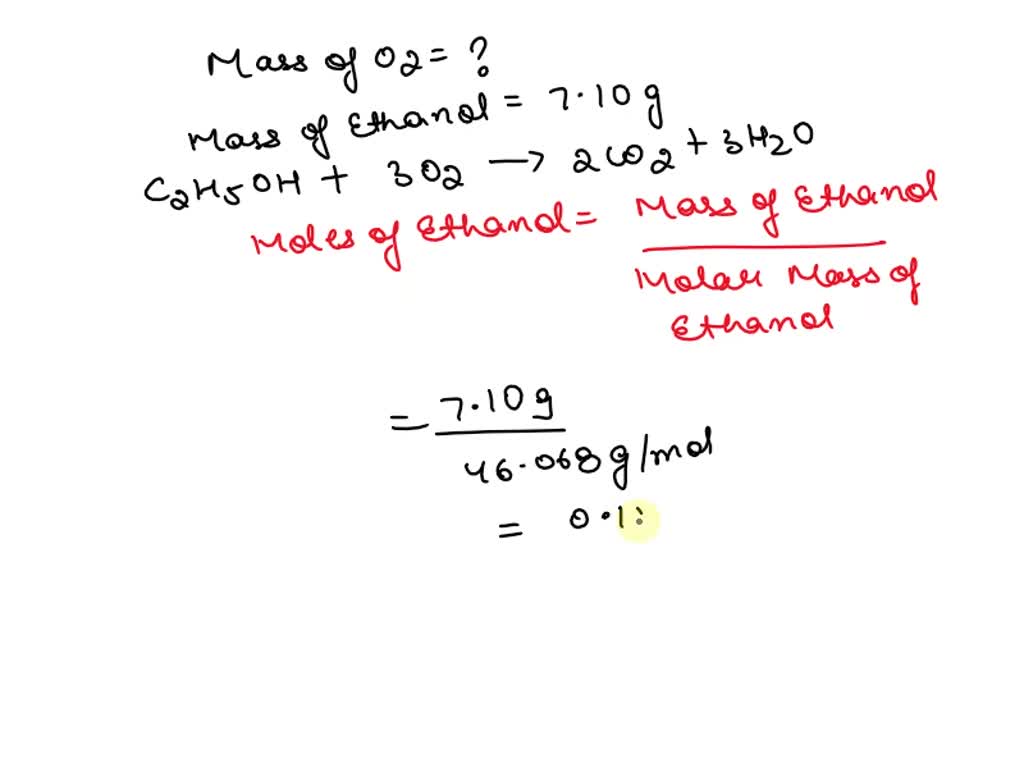 Mass of O2 = ?
Mass of Ethanol = 7.10 g
C2H5OH + 3O2 → 2CO2 + 3H2O
Moles of Ethanol = Mass of Ethanol
Molar Mass of
Ethanol
= 7.10 g
46.068 g/mol
= 0.1